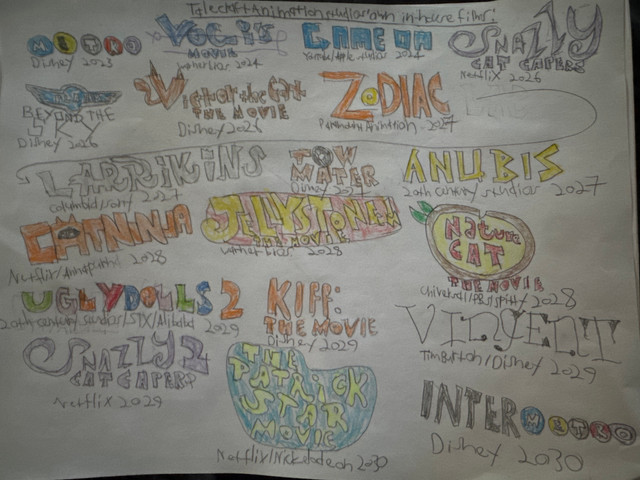 Animation studios own in-house films:
METRO
Disney 2023
MOVIE
2024
GAME ON
2024
SNAZZY
CAT CAPERS
Netflix 2026
BEYOND THE
SKY
Disney 2026
Victor the
THE MOVIE
Disney 2026
ZODIAC
Paramount Animation 2027
LARRIKINS
2027
TOW
MATER
Disney 2027
ANUBIS
20th century studios 2027
CATNINJA
Netflix/Annapurna 2028
JELLYSTONE!!
THE MOVIE
2028
Nature
CAT
THE MOVIE
2028
UGLYDOLLS 2
20th century studios/STX/Alibaba 2029
KIFF:
THE MOVIE
Disney 2029
VINCENT
Tim Burton/Disney 2029
SNAZZY 2
CAT CAPERS
Netflix 2029
THE
PATRICK
STAR
MOVIE
Netflix/Nickelodeon 2030
INTERMETRO
Disney 2030